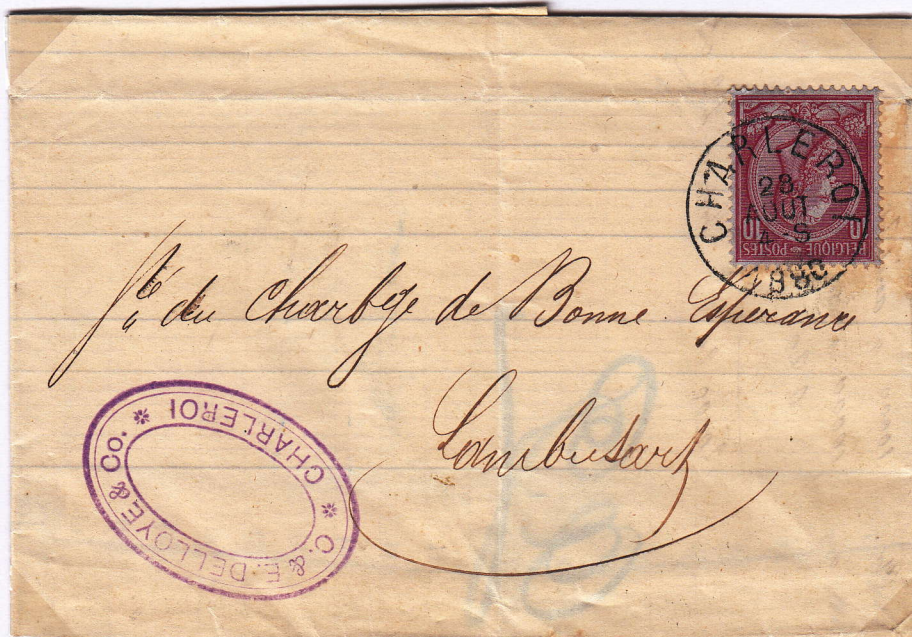 CHARLEROI
28
AOUT
4-S
10 10
BELGIQUE-POSTES
Sté du Charbge de Bonne Espérance
Lambusart
C. & E. DELLOYE & Co. * CHARLEROI *